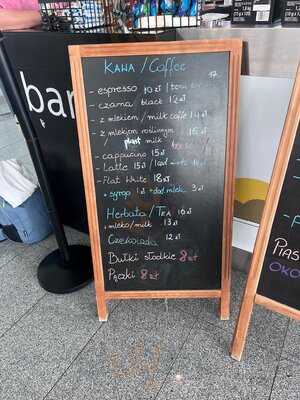 Kawa / Coffee
- espresso 10 zł /
- czarna / black 12 zł
- z mlekiem / milk coffe 14 zł
- z mlekiem roślinnym / 16 zł
plant milk
- cappucino 15 zł
- Latte 15 zł /
- Flat White 18 zł
+ syrop 1 zł + dod. mleko 3 zł
Herbata / TEA 16 zł
+ mleko / milk 13 zł
Czekolada 12 zł
Bułki słodkie 8 zł
Pączki 8 zł
bar